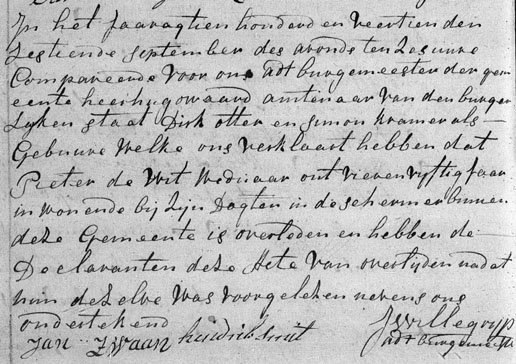 In het Jaar agtien honderd en veertien den
Zestiende September des avonds ten Zes uure
Compareerde voor ons adt burgemeester der gem
eente heerhugowaard amtenaar van den burger
Lyken staat Dirk otter en simon kramer als
Gebuure welke ons verklaart hebben dat
Pieter de Wit Weduaar out vier en vyftig Jaar
in wonende bij Zijn Dogter in de schermer binnen
deze Gemeente is overleden en hebben de
Declaranten deze Acte van overlijden nadat
hun dezelve was voorgelezen nevens ons
onderstekend
Jan Zwaan hendrik smit JWillegrijp
adt burgemeester